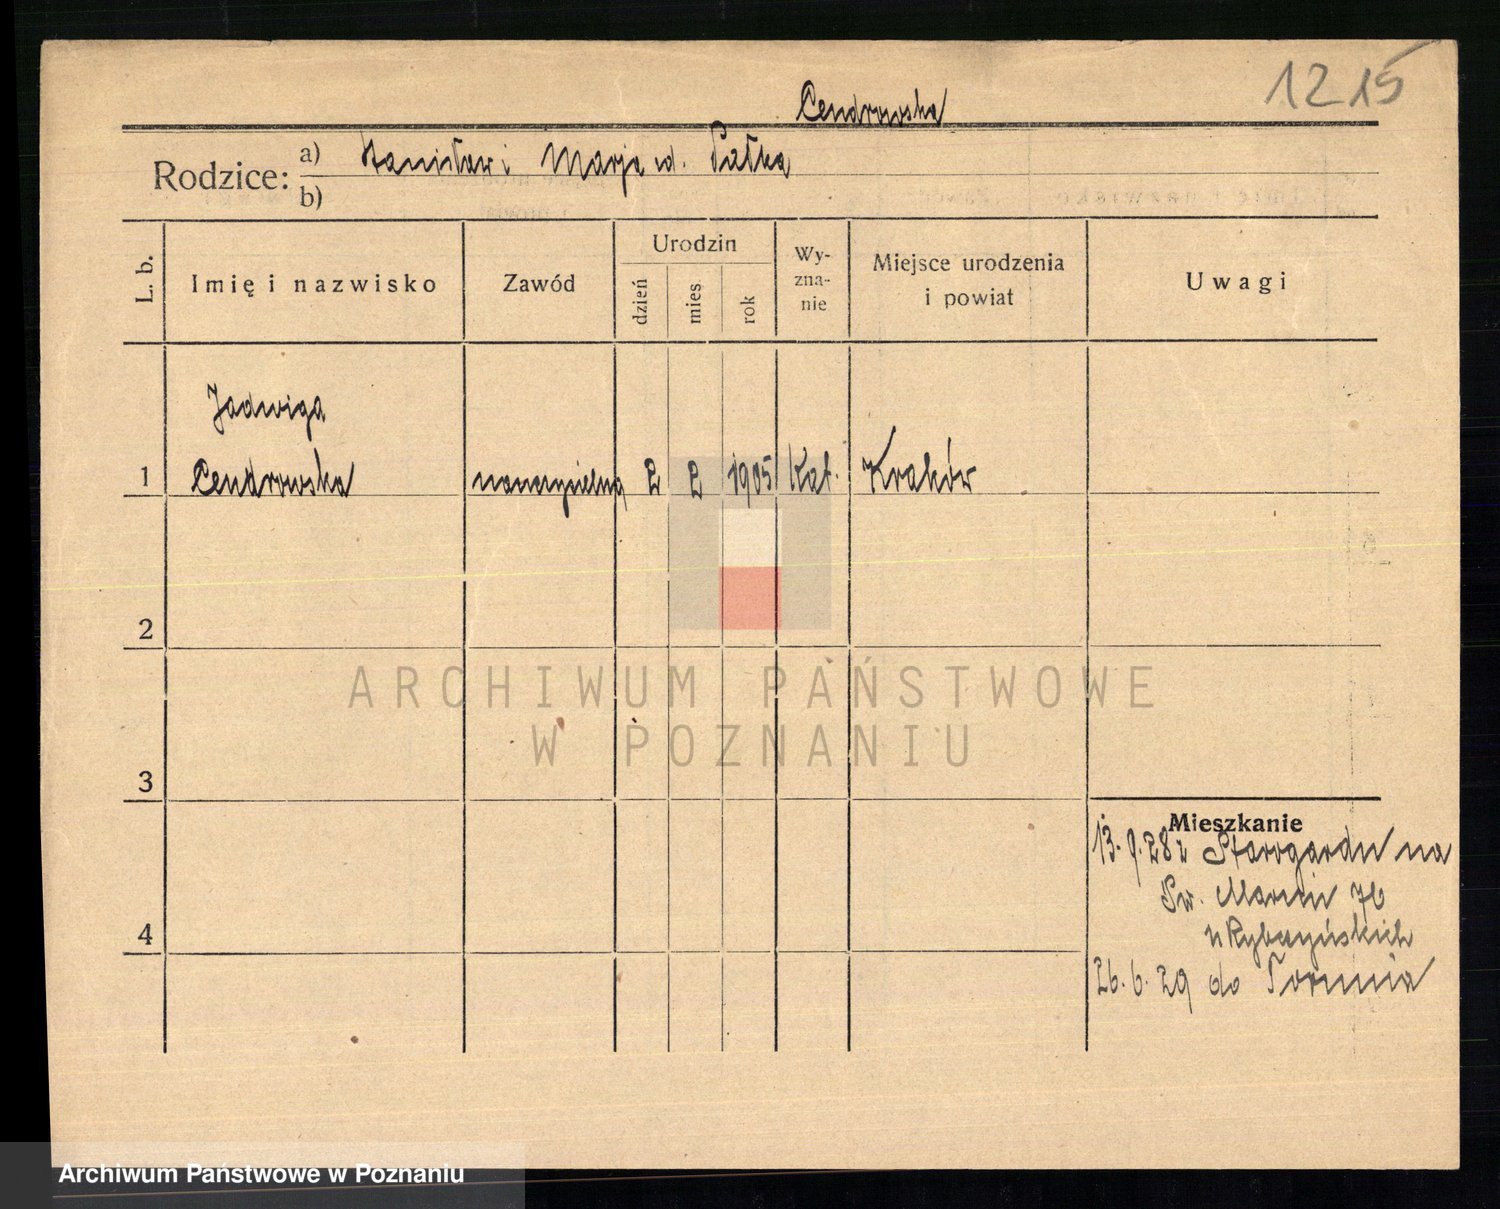 1215
Cendrowska
Rodzice: a) Stanisław i Marja z d. Pałka
b)
L. b. Imię i nazwisko Zawód Urodzin dzień mies rok Wy-zna-nie Miejsce urodzenia i powiat Uwagi
Jadwiga
1 Cendrowska nauczycielka 2 2 1905 Kat. Kraków
2
ARCHIWUM PAŃSTWOWE
W POZNANIU
3
Mieszkanie
13.9.28 z Starogardu na
Św. Marcin 76
u Rybczyńskich
4
26.6.29 do Torunia
Archiwum Państwowe w Poznaniu